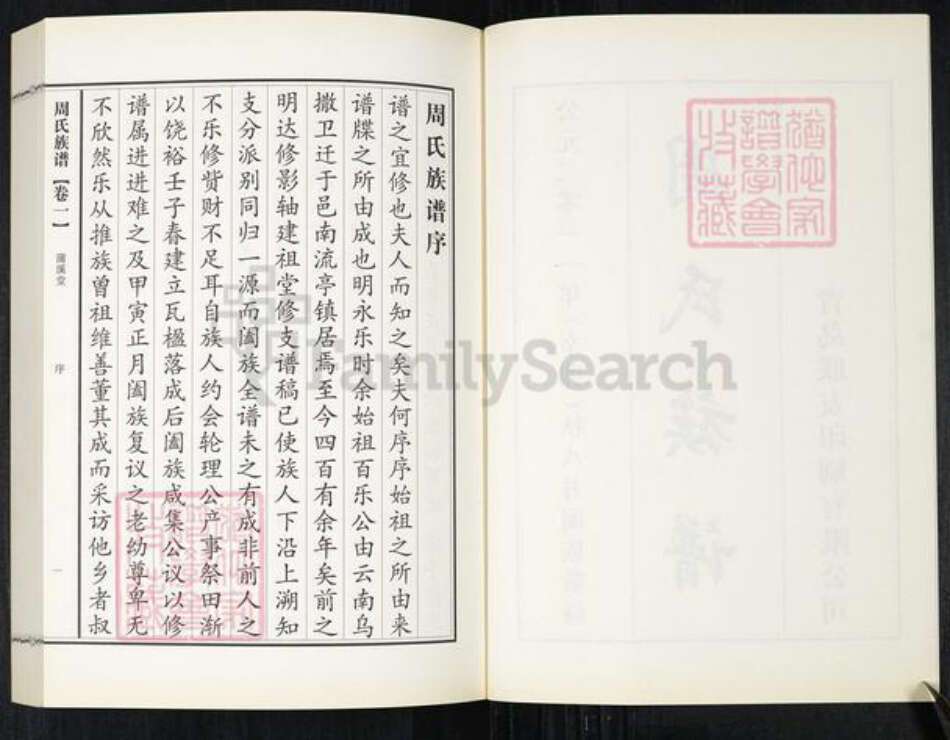 周氏族谱序
谱之宜修也夫人而知之矣夫何序序始祖之所由来
谱牒之所由成也明永乐时余始祖百乐公由云南乌
撒卫迁于邑南流亭镇居焉至今四百有余年矣前之
明达修影轴建祖堂修支谱稿已使族人下沿上溯知
支分派别同归一源而阖族全谱未之有成非前人之
不乐修赀财不足耳自族人约会轮理公产事祭田渐
以饶裕壬子春建立瓦楹落成后阖族咸集公议以修
谱属进进难之及甲寅正月阖族复议之老幼尊卑无
不欣然乐从推族曾祖维善董其成而采访他乡者叔
周氏族谱【卷一】
蒲溪堂
序
一
FamilySearch
猶他家
譜學會
收藏